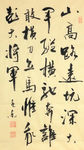 山高路遠坑深大
軍縱橫馳奔誰
敢橫刀立馬惟我
彭大將軍